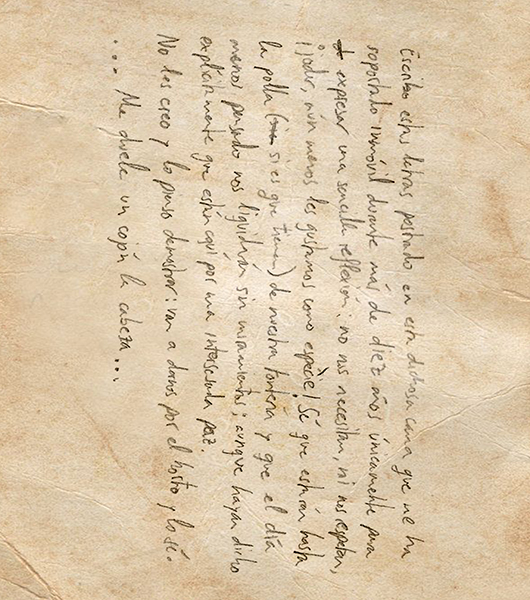 Escribo estas letras postrado en esta dichosa cama que me ha
soportado inmóvil durante más de diez años únicamente para
expresar una sencilla reflexión: no nos necesitan, ni nos respetan,
¡joder, aún menos les gustamos como especie! Sé que estarán hasta
la polla (si es que tienen) de nuestra tontería y que el día
menos pensado nos liquidarán sin miramientos; aunque hayan dicho
explícitamente que están aquí por una interesada paz.
No les creo y lo puedo demostrar: van a darnos por el kosto y lo sé.
... Me duele un cojón la cabeza...